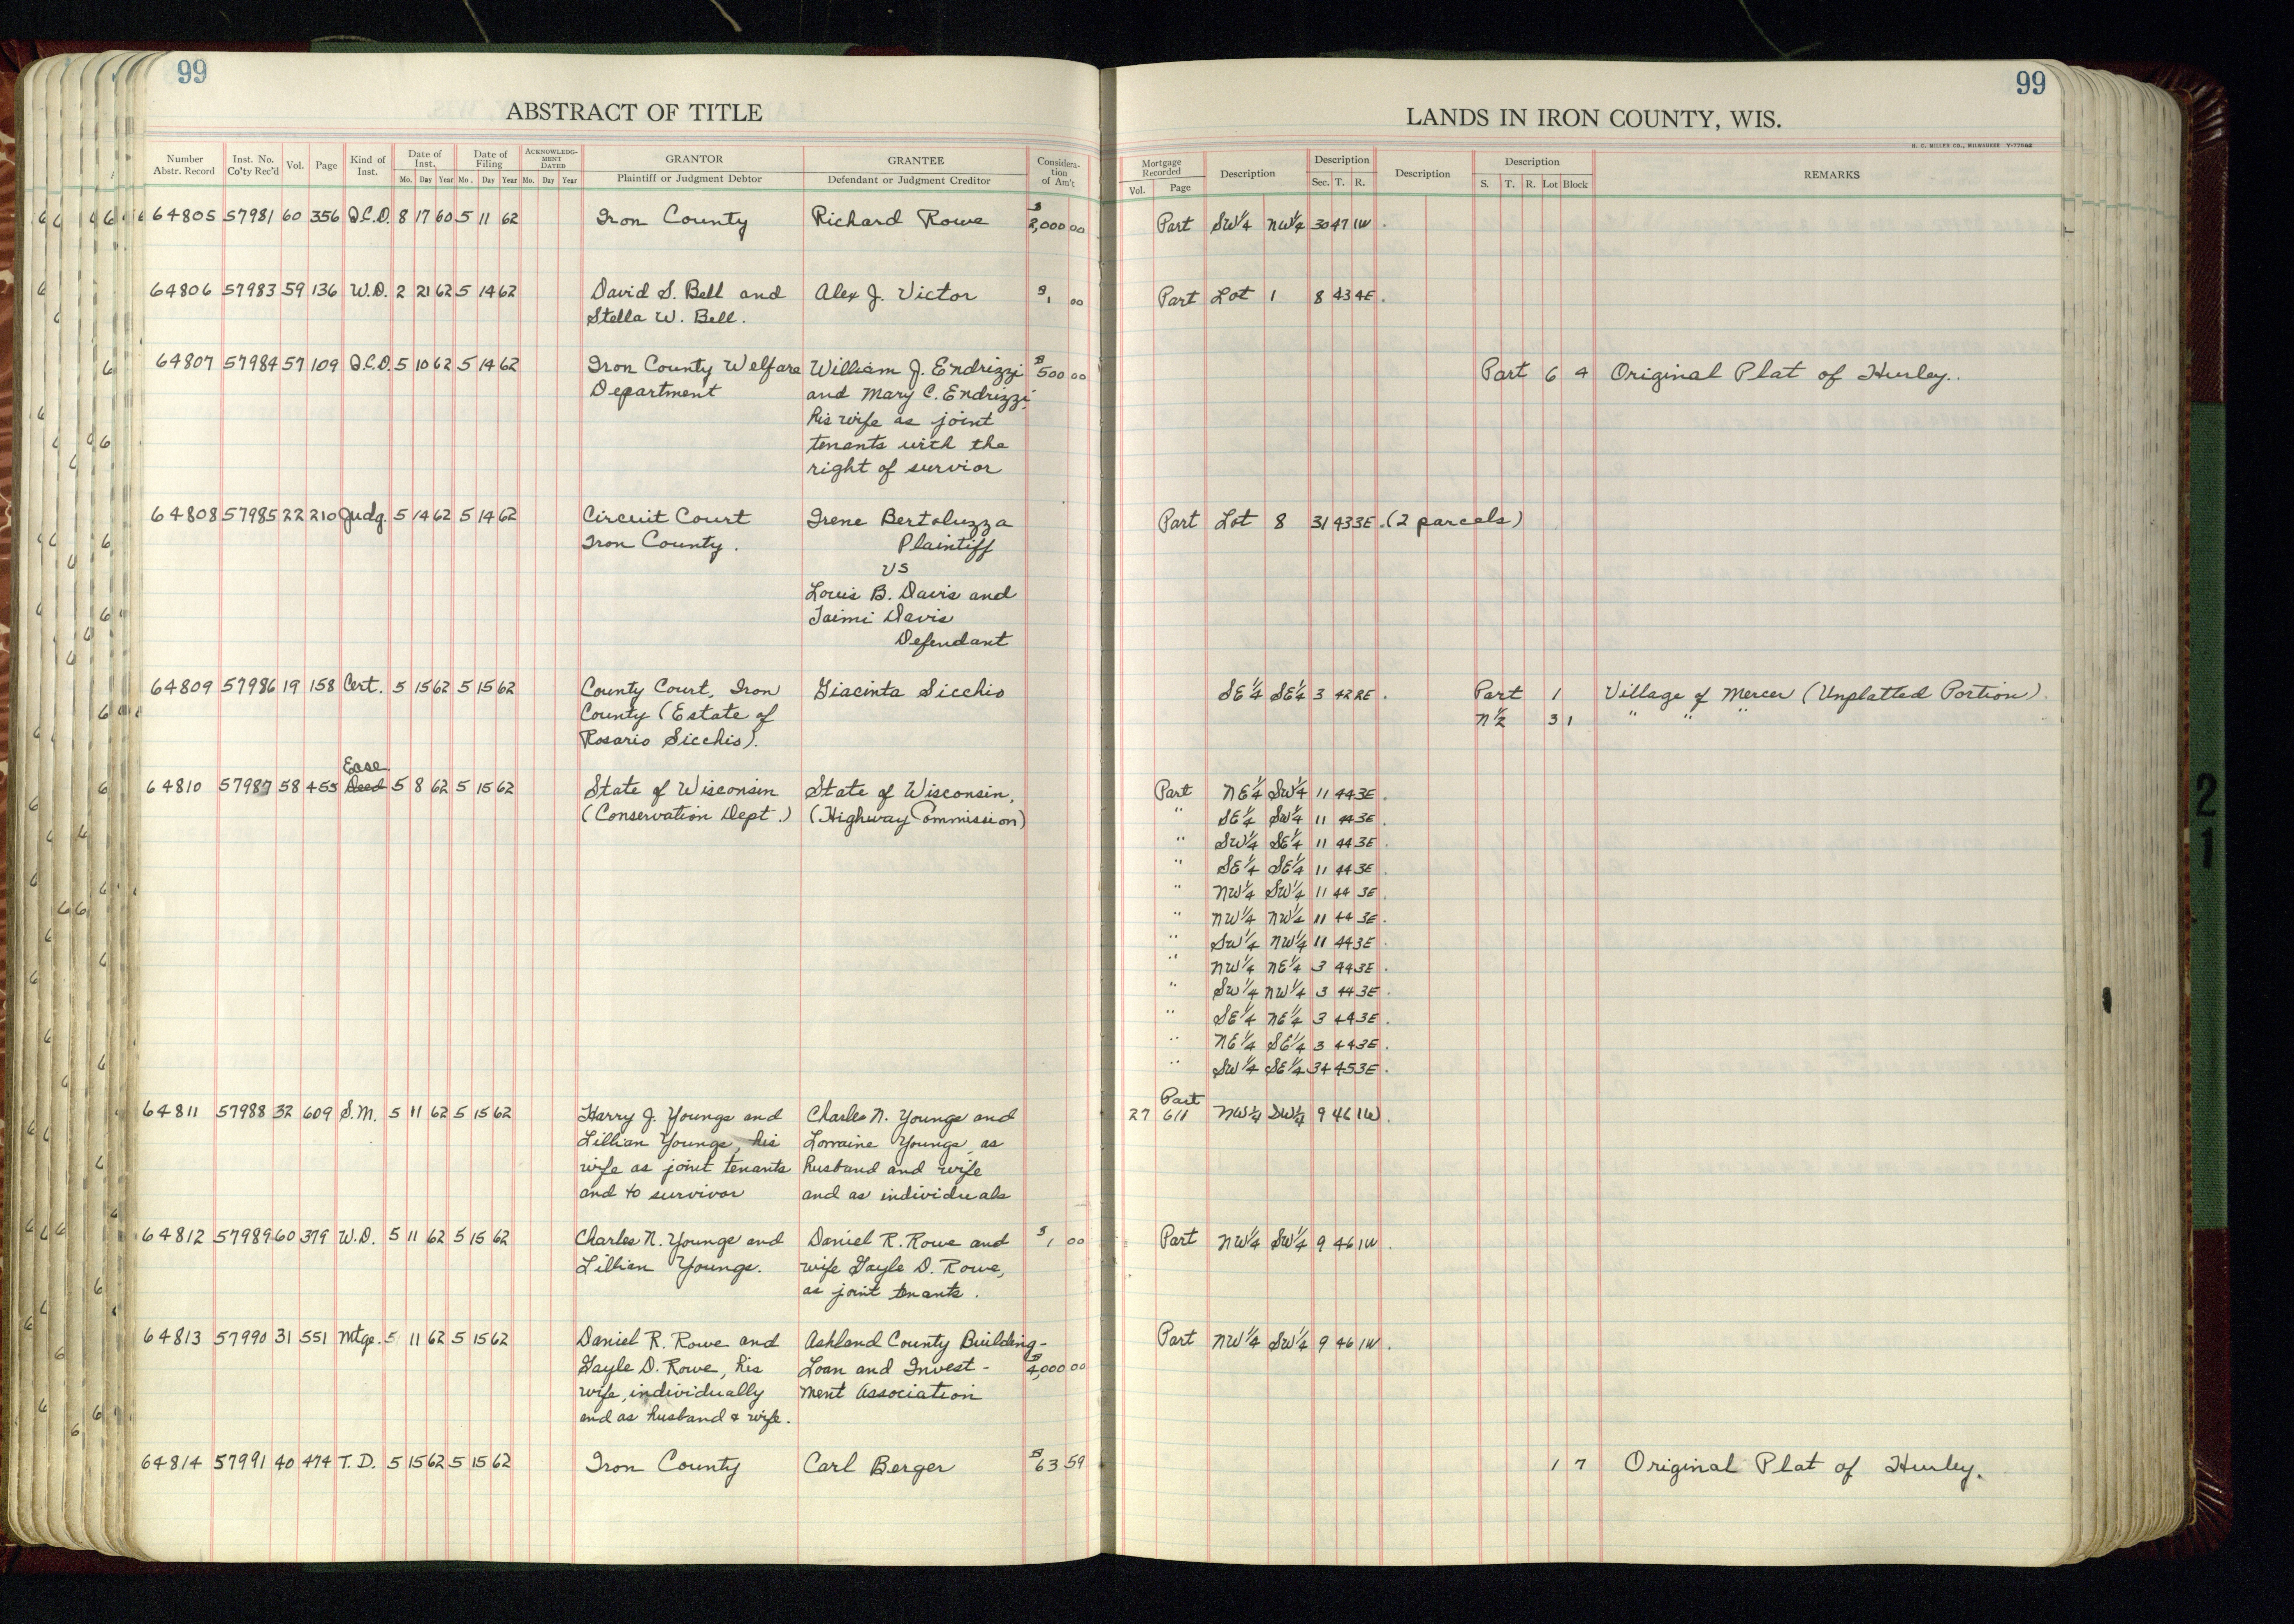 99
99
ABSTRACT OF TITLE
LANDS IN IRON COUNTY, WIS.
H. C. MILLER CO., MILWAUKEE
Number Abstr. Record Inst. No. Co'ty Rec'd Vol. Page Kind of Inst. Date of Inst. Mo. Day Year Date of Filing Mo. Day Year ACKNOWLEDGMENT DATED Mo. Day Year GRANTOR Plaintiff or Judgment Debtor GRANTEE Defendant or Judgment Creditor Consideration of Am't
Mortgage Recorded Vol. Page Description Description Sec. T. R. Description Description S. T. R. Lot Block REMARKS
64805 57981 60 356 Q.C.D. 8 17 60 5 11 62 Iron County Richard Rowe $2,000 00 Part SW¼ NW¼ 30 47 1W.
64806 57983 59 136 W.D. 2 21 62 5 14 62 David S. Bell and Alex J. Victor $1 00 Part Lot 1 8 43 4E.
Stella W. Bell.
64807 57984 57 109 Q.C.D. 5 10 62 5 14 62 Iron County Welfare William J. Endrizzi $500 00 Part 6 4 Original Plat of Hurley.
Department and Mary C. Endrizzi,
his wife as joint
tenants with the
right of survior
64808 57985 22 210 Judg. 5 14 62 5 14 62 Circuit Court Irene Bertoluzza Part Lot 8 31 43 3E. (2 parcels)
Iron County. Plaintiff
vs
Louis B. Davis and
Taimi Davis
Defendant
64809 57986 19 158 Cert. 5 15 62 5 15 62 County Court, Iron Giacinta Sicchio SE¼ SE¼ 3 42 2E. Part 1 Village of Mercer (Unplatted Portion).
County (Estate of N½ 3 1 " " "
Rosario Sicchio).
Ease
64810 57987 58 455 Deed 5 8 62 5 15 62 State of Wisconsin State of Wisconsin, Part NE¼ SW¼ 11 44 3E.
(Conservation Dept.) (Highway Commission) " SE¼ SW¼ 11 44 3E.
" SW¼ SE¼ 11 44 3E.
" SE¼ SE¼ 11 44 3E.
" NW¼ SW¼ 11 44 3E.
" NW¼ NW¼ 11 44 3E.
" SW¼ NW¼ 11 44 3E.
" NW¼ NE¼ 3 44 3E.
" SW¼ NW¼ 3 44 3E.
" SE¼ NE¼ 3 44 3E.
" NE¼ SE¼ 3 44 3E.
" SW¼ SE¼ 34 45 3E.
Part
64811 57988 32 609 S.M. 5 11 62 5 15 62 Harry J. Youngs and Charles N. Youngs and 27 611 NW¼ SW¼ 9 46 1W.
Lillian Youngs, his Lorraine Youngs, as
wife as joint tenants husband and wife
and to survivor and as individuals
64812 57989 60 379 W.D. 5 11 62 5 15 62 Charles N. Youngs and Daniel R. Rowe and $1 00 Part NW¼ SW¼ 9 46 1W.
Lillian Youngs. wife Gayle D. Rowe,
as joint tenants.
64813 57990 31 551 Mtge. 5 11 62 5 15 62 Daniel R. Rowe and Ashland County Building- Part NW¼ SW¼ 9 46 1W.
Gayle D. Rowe, his Loan and Invest- $4,000 00
wife, individually ment Association
and as husband & wife.
64814 57991 40 474 T.D. 5 15 62 5 15 62 Iron County Carl Berger $63 59 1 7 Original Plat of Hurley.
21